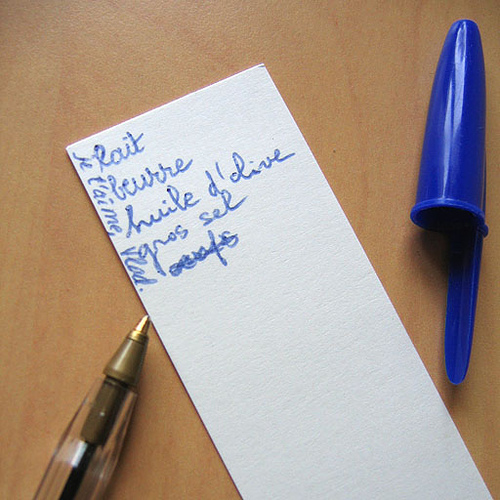 lait
beurre
huile d'olive
gros sel
oeufs
Je t'aime, Vlad.